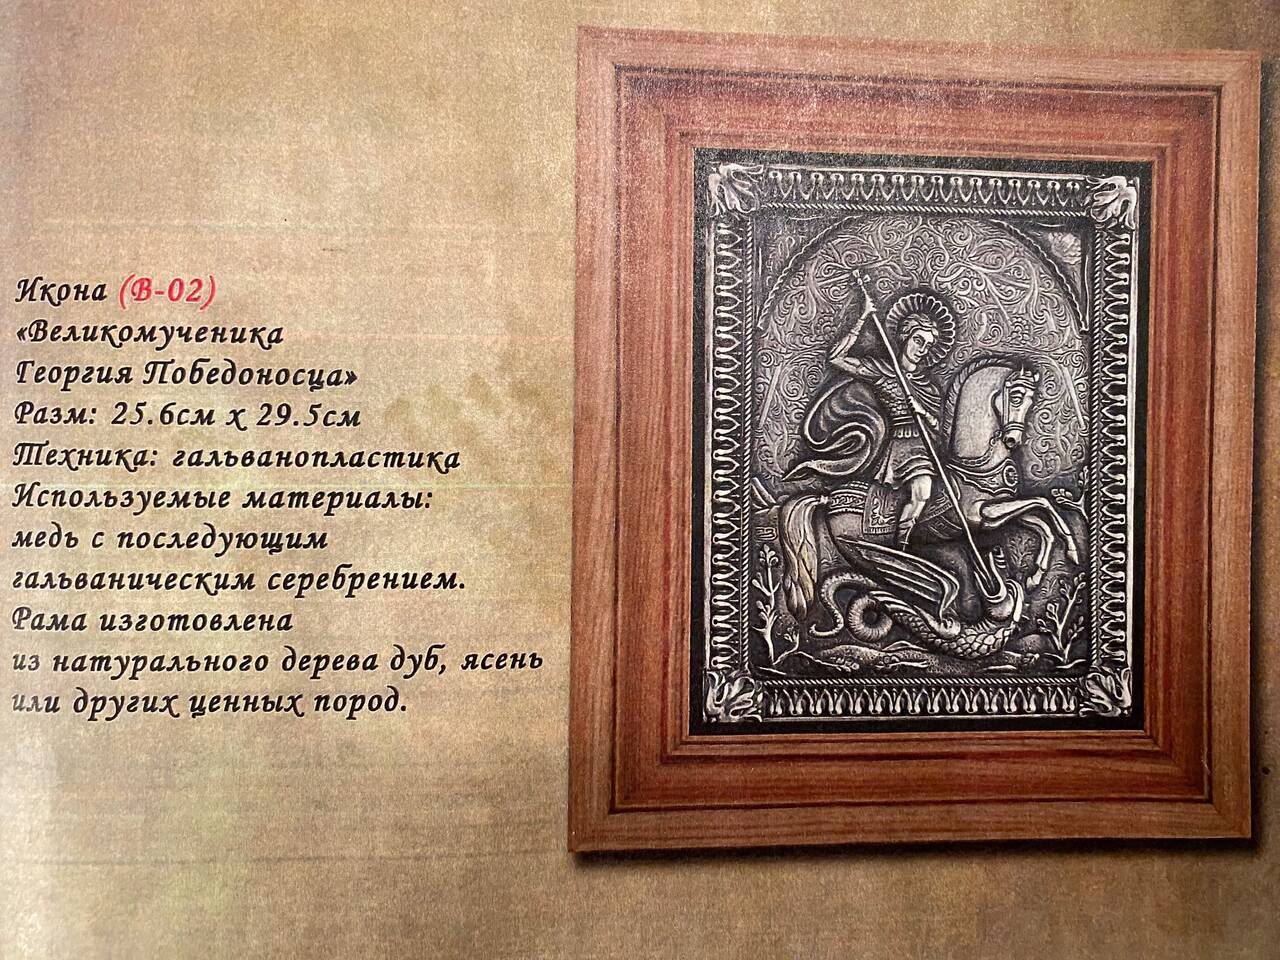 Икона (В-02)
«Великомученика
Георгия Победоносца»
Разм: 25.6см х 29.5см
Техника: гальванопластика
Используемые материалы:
медь с последующим
гальваническим серебрением.
Рама изготовлена
из натурального дерева дуб, ясень
или других ценных пород.